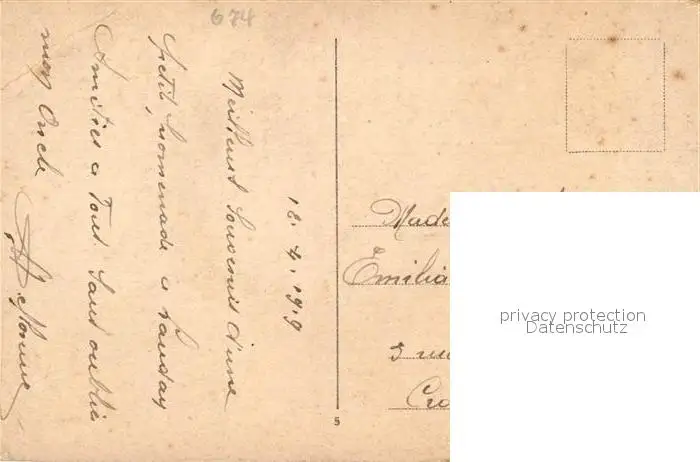 674
18.4.1919
Meilleurs Souvenirs d'une
petite promenade a
Amitiés a Tous. Sans oublier
mon Oncle
Made
Emilia
3 rue
Cro
5
privacy protection
Datenschutz